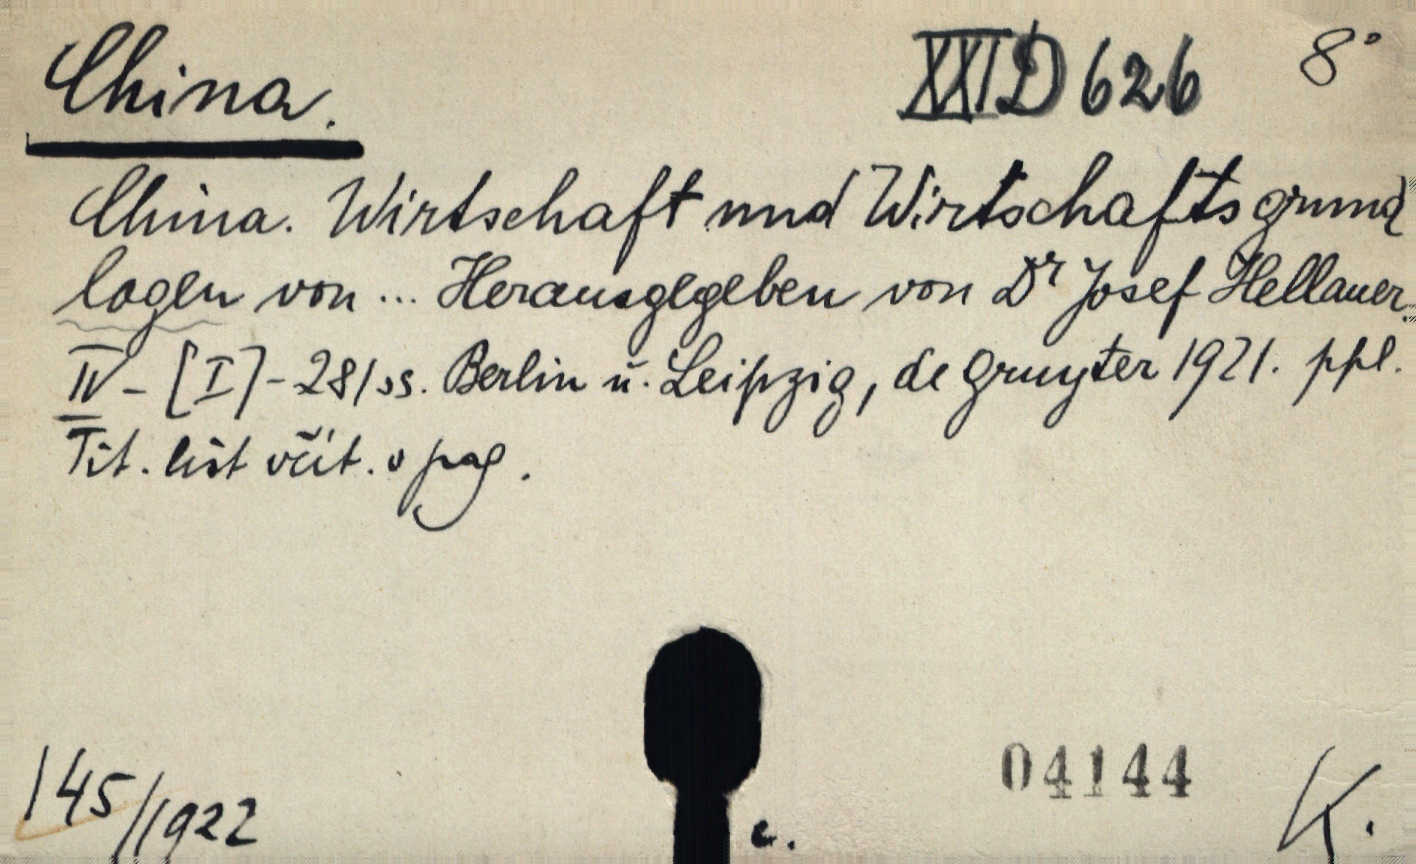 China. XXI D 626 8°
China. Wirtschaft und Wirtschaftsgrund
lagen von ... Herausgegeben von Dr Josef Hellauer.
IV - [I] - 281 ss. Berlin u. Leipzig, de Gruyter 1921. ppl.
Tit. list včít. v pag.
145/1922 c. 04144 K.